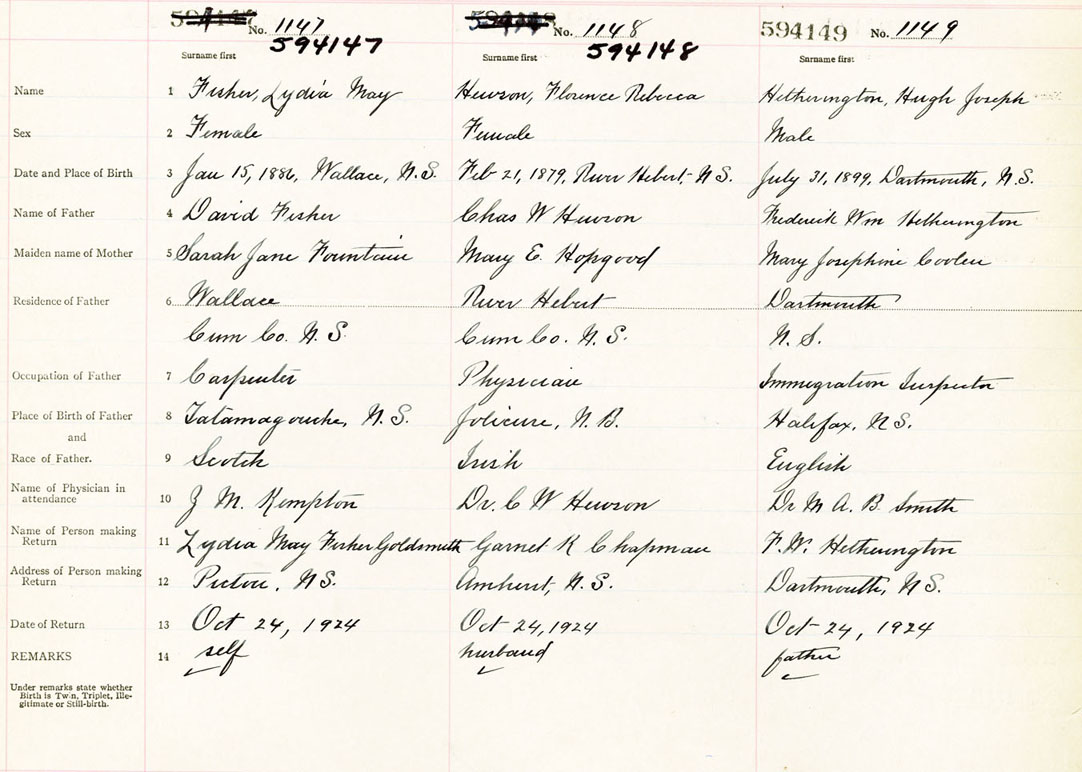 No. 1147 No. 1148 594149 No. 1149
594147 594148
Surname first Surname first Surname first
Name 1 Fisher, Lydia May Hewson, Florence Rebecca Hetherington, Hugh Joseph
Sex 2 Female Female Male
Date and Place of Birth 3 Jan 15, 1886, Wallace, N.S. Feb 21, 1879, River Hebert, N S. July 31, 1899, Dartmouth, N.S.
Name of Father 4 David Fisher Chas W Hewson Frederick Wm Hetherington
Maiden name of Mother 5 Sarah Jane Fountain Mary E. Hopgood Mary Josephine Coolen
Residence of Father 6 Wallace River Hebert Dartmouth
Cum Co. N. S. Cum Co. N. S. N. S.
Occupation of Father 7 Carpenter Physician Immigration Inspector
Place of Birth of Father 8 Tatamagouche, N.S. Jolicure, N.B. Halifax, N.S.
and
Race of Father. 9 Scotch Irish English
Name of Physician in
attendance 10 Z M. Kempton Dr. C W Hewson Dr M A. B. Smith
Name of Person making
Return 11 Lydia May Fisher Goldsmith Garnet K Chapman F. W. Hetherington
Address of Person making
Return 12 Pictou, N S. Amherst, N.S. Dartmouth, N S.
Date of Return 13 Oct 24, 1924 Oct 24, 1924 Oct 24, 1924
REMARKS 14 self husband father
Under remarks state whether
Birth is Twin, Triplet, Ille-
gitimate or Still-birth.